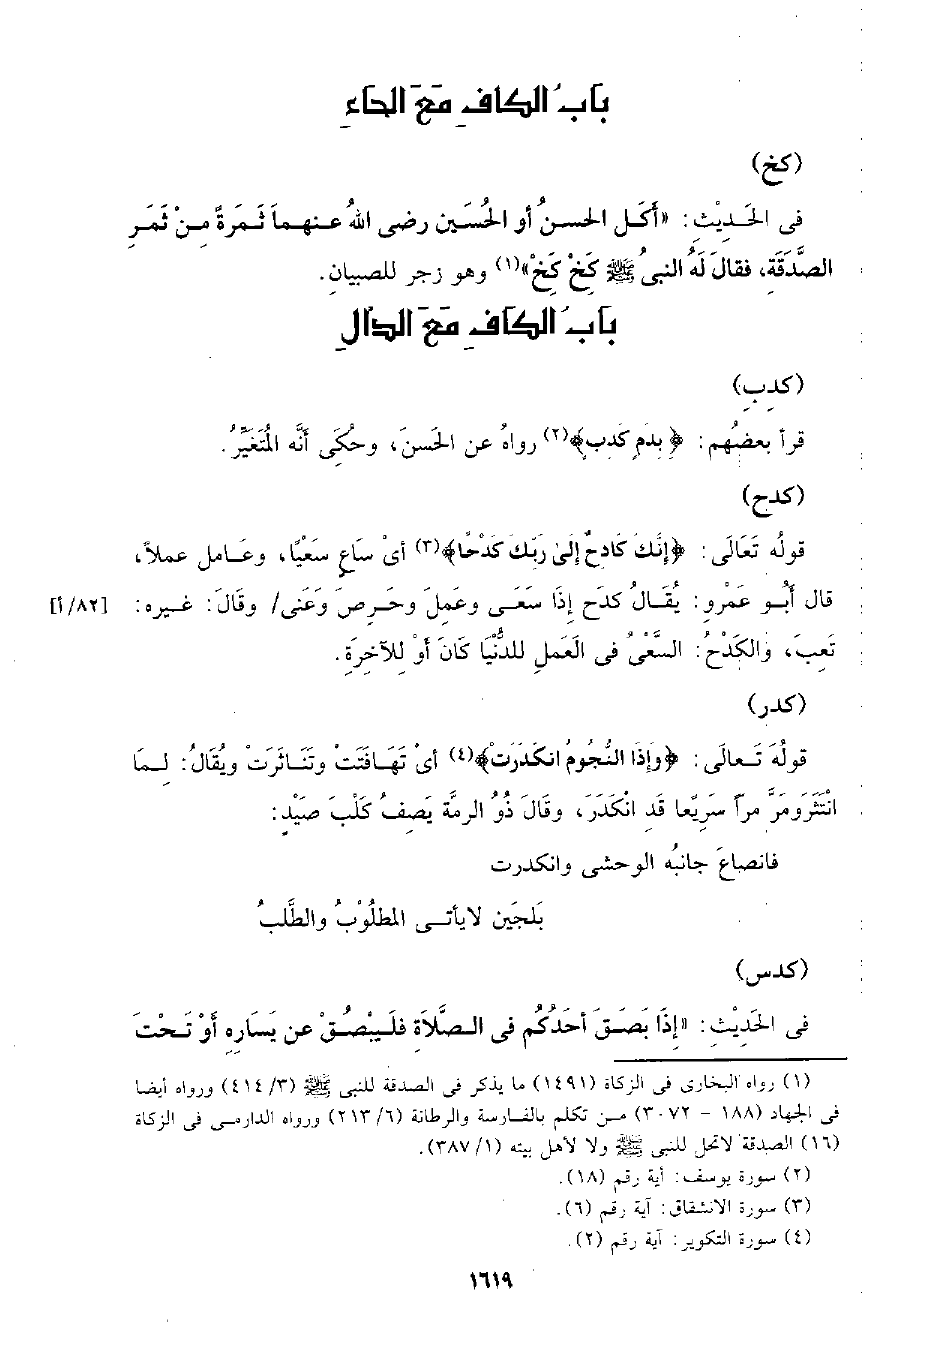 بَابُ الكاف مَعَ الحاءِ
(كخ)
فى الحَديْث: «أَكَل الحسنُ أو الحُسَين رضى اللهُ عنهما ثَمَرةً مِنْ ثَمَرِ
الصَّدَقَةِ، فقالَ لَهُ النبىُ ﷺ كَخْ كَخْ»(١) وهو زجر للصبيانِ.
بَابُ الكَاف مَعَ الدَالِ
(كدب)
قرأ بعضُهم: ﴿بِدَمٍ كَدِبٍ﴾(٢) رواهُ عن الحَسنَ، وحُكِى أنَّه المُتَغَيِّرُ.
(كدح)
قولُه تَعَالَى: ﴿إِنَّكَ كَادِحٌ إِلَىٰ رَبِّكَ كَدْحًا﴾(٣) أىْ سَاعٍ سَعْيًا، وعَامل عملاً،
قال أَبُو عَمْرو: يُقَالُ كدَح إذَا سَعَى وعَملَ وحَرصَ وَعَنى/ وقَالَ: غيره: [٨٢/أ]
تَعِبَ، والكَدْحُ: السَّعْىُ فى العَملِ للدُّنْيَا كَانَ أوْ لِلآخِرَةِ.
(كدر)
قولُهَ تَعالَى: ﴿وَإِذَا النُّجُومُ انكَدَرَتْ﴾(٤) أىْ تَهَافَتَتْ وتَنَاثَرَتْ ويُقَالُ: لِما
انْتَثَرَومَرَّ مراً سَرِيْعا قد انْكَدَرَ، وقَالَ ذُوُ الرمَّة يَصفُ كَلْبَ صَيْدٍ:
فانصاعَ جانبُه الوحشى وانكدرت
يَلحَبْن لايأتى المطلُوْبُ والطَّلبُ
(كدس)
فى الحَديْث: «إذَا بَصَقَ أحَدُكُم فى الصَّلاَةِ فلَيبْصُقْ عن يَسَارِهِ أوْ تَحْتَ
(١) رواه البخارى فى الزكاة (١٤٩١) ما يذكر فى الصدقة للنبى ﷺ (٣/ ٤١٤) ورواه أيضا
فى الجهاد (١٨٨ - ٣٠٧٢) من تكلم بالفارسة والرطانة (٦/ ٢١٣) ورواه الدارمى فى الزكاة
(١٦) الصدقة لاتحل للنبى ﷺ ولا لأهل بيته (١/ ٣٨٧).
(٢) سورة يوسف: أية رقم (١٨).
(٣) سورة الانشقاق: آية رقم (٦).
(٤) سورة التكوير: آية رقم (٢).
١٦١٩